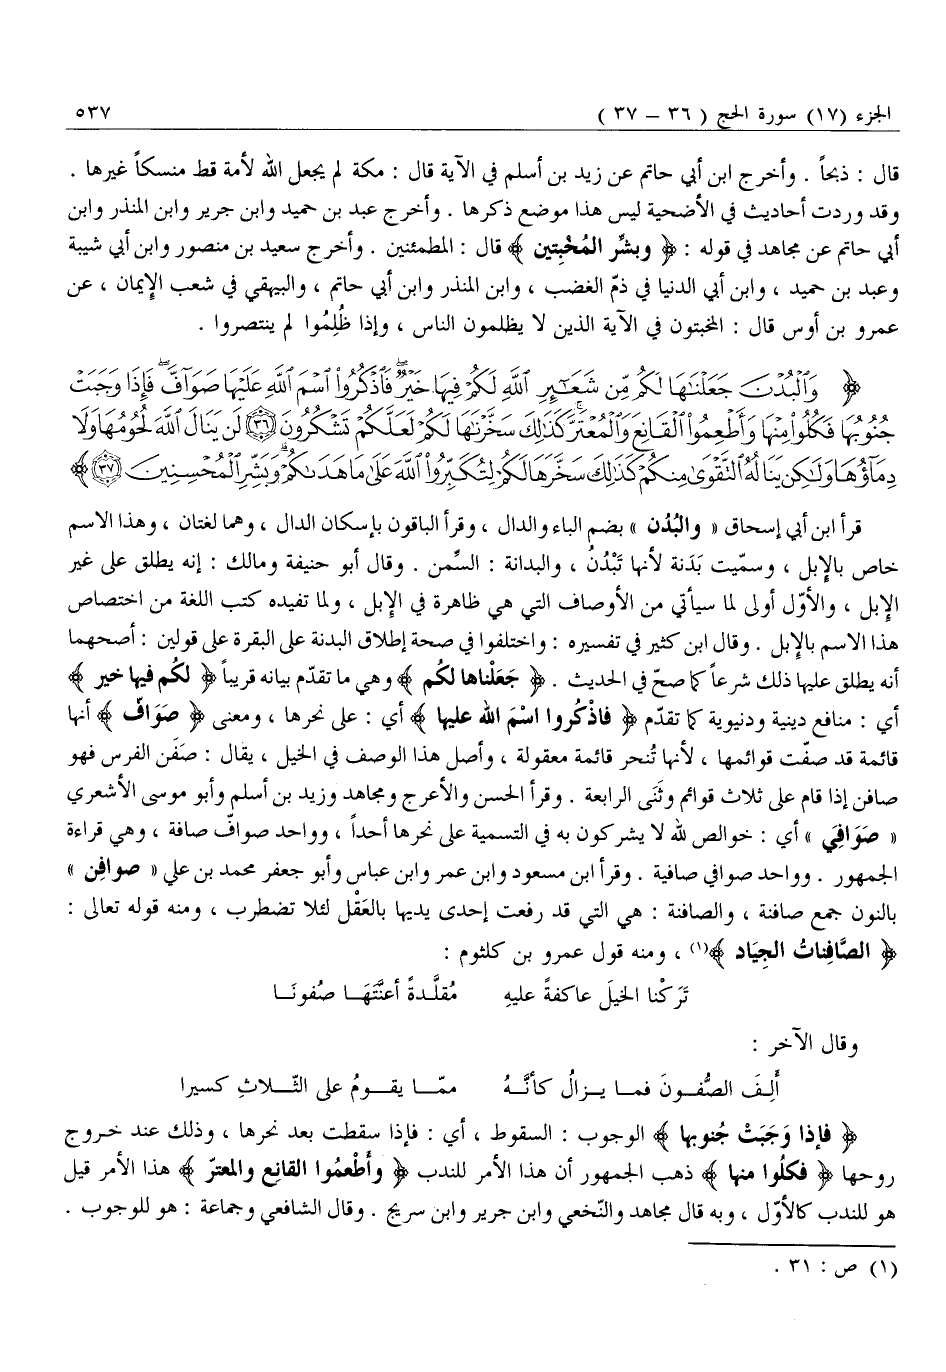 الجزء (١٧) سورة الحج ( ٣٦ – ٣٧ ) ٥٣٧
قال : ذبحاً . وأخرج ابن أبي حاتم عن زيد بن أسلم في الآية قال : مكة لم يجعل الله لأمة قط منسكاً غيرها .
وقد وردت أحاديث في الأضحية ليس هذا موضع ذكرها . وأخرج عبد بن حميد وابن جرير وابن المنذر وابن
أبي حاتم عن مجاهد في قوله : ﴿ وبشِّر المُخْبِتين ﴾ قال : المطمئنين . وأخرج سعيد بن منصور وابن أبي شيبة
وعبد بن حميد ، وابن أبي الدنيا في ذمّ الغضب ، وابن المنذر وابن أبي حاتم ، والبيهقي في شعب الإيمان ، عن
عمرو بن أوس قال : المخبتون في الآية الذين لا يظلمون الناس ، وإذا ظُلِمُوا لم ينتصروا .
﴿ وَٱلْبُدْنَ جَعَلْنَٰهَا لَكُم مِّن شَعَٰٓئِرِ ٱللَّهِ لَكُمْ فِيهَا خَيْرٌ ۖ فَٱذْكُرُوا۟ ٱسْمَ ٱللَّهِ عَلَيْهَا صَوَآفَّ ۖ فَإِذَا وَجَبَتْ
جُنُوبُهَا فَكُلُوا۟ مِنْهَا وَأَطْعِمُوا۟ ٱلْقَانِعَ وَٱلْمُعْتَرَّ ۚ كَذَٰلِكَ سَخَّرْنَٰهَا لَكُمْ لَعَلَّكُمْ تَشْكُرُونَ ٣٦ لَن يَنَالَ ٱللَّهَ لُحُومُهَا وَلَا
دِمَآؤُهَا وَلَٰكِن يَنَالُهُ ٱلتَّقْوَىٰ مِنكُمْ ۚ كَذَٰلِكَ سَخَّرَهَا لَكُمْ لِتُكَبِّرُوا۟ ٱللَّهَ عَلَىٰ مَا هَدَىٰكُمْ ۗ وَبَشِّرِ ٱلْمُحْسِنِينَ ٣٧ ﴾
قرأ ابن أبي إسحاق « والبُدُن » بضم الباء والدال ، وقرأ الباقون بإسكان الدال ، وهما لغتان ، وهذا الاسم
خاص بالإبل ، وسمّيت بَدَنة لأنها تَبْدُنُ ، والبدانة : السِّمن . وقال أبو حنيفة ومالك : إنه يطلق على غير
الإبل ، والأوّل أولى لما سيأتي من الأوصاف التي هي ظاهرة في الإبل ، ولما تفيده كتب اللغة من اختصاص
هذا الاسم بالإبل . وقال ابن كثير في تفسيره : واختلفوا في صحة إطلاق البدنة على البقرة على قولين : أصحهما
أنه يطلق عليها ذلك شرعاً كما صحّ في الحديث . ﴿ جَعَلْناها لكُم ﴾ وهي ما تقدّم بيانه قريباً ﴿ لكُم فيها خير ﴾
أي : منافع دينية ودنيوية كما تقدّم ﴿ فاذْكُروا اسْمَ الله عليها ﴾ أي : على نحرها ، ومعنى ﴿ صَوَافّ ﴾ أنها
قائمة قد صفّت قوائمها ، لأنها تُنحر قائمة معقولة ، وأصل هذا الوصف في الخيل ، يقال : صَفَن الفرس فهو
صافن إذا قام على ثلاث قوائم وثَنَى الرابعة . وقرأ الحسن والأعرج ومجاهد وزيد بن أسلم وأبو موسى الأشعري
« صَوَافِيَ » أي : خوالص لله لا يشركون به في التسمية على نحرها أحداً ، وواحد صوافّ صافة ، وهي قراءة
الجمهور . وواحد صوافي صافية . وقرأ ابن مسعود وابن عمر وابن عباس وأبو جعفر محمد بن علي « صوافِن »
بالنون جمع صافنة ، والصافنة : هي التي قد رفعت إحدى يديها بالعَقْل لئلا تضطرب ، ومنه قوله تعالى :
﴿ الصَّافِناتُ الجِيَاد ﴾(١) ، ومنه قول عمرو بن كلثوم :
تَرَكْنا الخيلَ عاكفةً عليهِ مُقلَّدةً أعنَّتَهَـا صُفونَـا
وقال الآخر :
أَلِفَ الصُّفـونَ فمـا يـزالُ كأنَّـهُ ممّـا يقـومُ على الثّـلاثِ كسيرا
﴿ فإذا وَجَبَتْ جُنوبها ﴾ الوجوب : السقوط ، أي : فإذا سقطت بعد نحرها ، وذلك عند خروج
روحها ﴿ فكُلُوا منها ﴾ ذهب الجمهور أن هذا الأمر للندب ﴿ وأَطْعِمُوا القانِع والمعترّ ﴾ هذا الأمر قيل
هو للندب كالأوّل ، وبه قال مجاهد والنّخعي وابن جرير وابن سريج . وقال الشافعي وجماعة : هو للوجوب .
(١) ص : ٣١ .